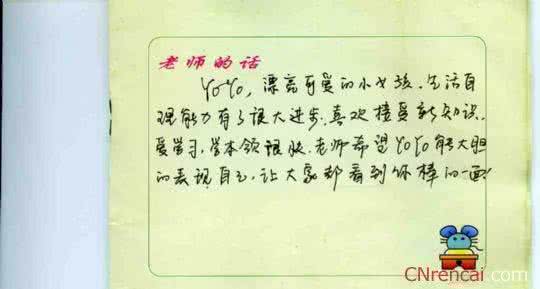 老师的话
YoYo，漂亮可爱的小女孩，生活自
理能力有了很大进步，喜欢接受新知识，
爱学习，学本领很快，老师希望YoYo能大胆
的表现自己，让大家都看到你棒的一面！
CNrencai.com